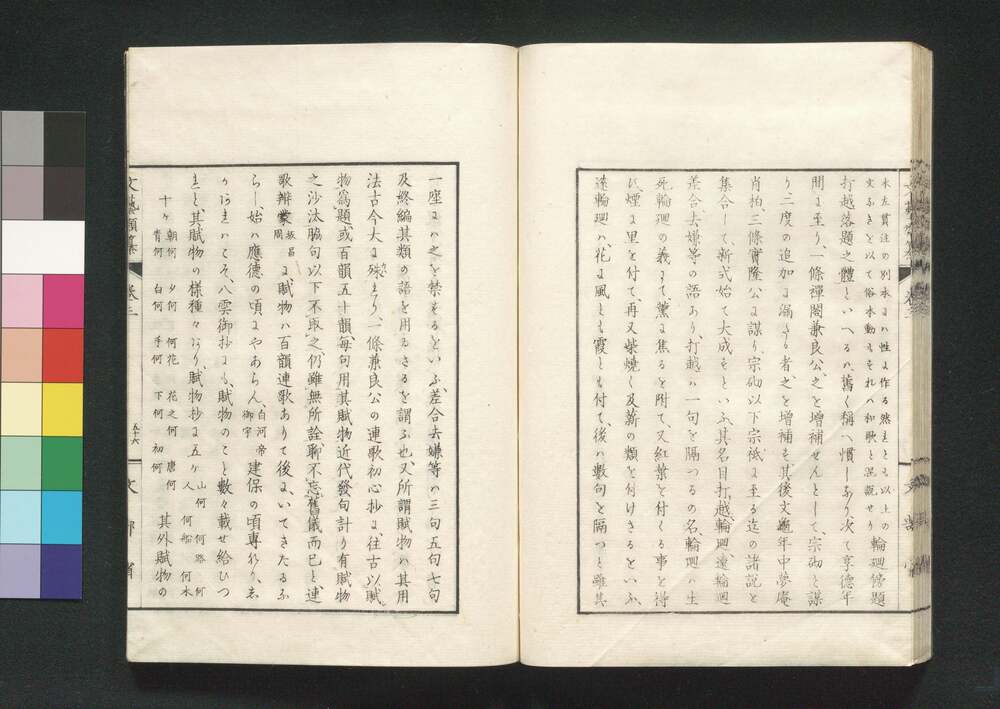 木左貫注の別本には性に作る然れども以上の
文なきを以て俗本動もすれハ和歌と混観せり
輪廻傍題
打越落題之體といへるハ舊く稱へ慣しあり次て享德年
間に至り、一條禪閤兼良公、之を增補せんとして、宗砌と謀
り、二度の追加に漏さる者之を增補も、其後文龜年中夢庵
肖柏、三條實隆公に謀り宗砌以下宗祇に至る迄の諸説と
集合して、新式始て大成をといふ、其名目打越輪廻遠輪廻
差合、去嫌等の語あり、打越ハ一句を隔つるの名、輪廻ハ生
死輪廻の義にて、薰に焦るを附て、又紅葉を付くる事を得
ば、煙に里を付て、再又柴燒く及薪の類を付けさるをといふ、
遠輪廻ハ、花に風とも霞とも付て、後ハ數句を隔つと雖其
一座にハ之を禁もるといふ、差合去嫌等ハ三句五句七句
及終編其類の語を用ゐさるを謂ふ也、又所謂賦物ハ其用
法古今大に殊なり、一條兼良公の連歌初心抄に、往古以賦
物爲題、或百韻五十韻、每句用其賦物近代發句計り有賦物
之沙汰脇句以下不取之、仍雖無所詮、聊不忘舊儀而已と、連
歌辨蒙
坂昌
周
に、賦物ハ百韻連歌ありて後に、いてきたるふ
らし、始ハ應德の頃にやあらん、
白河帝
御宇
建保の頃專なり、志
かあれハこそ八雲御抄にも、賦物のこと數々載せ給ひつ
れと、其賦物の樣種々あり賦物抄に五ケ
山何 何路 何
人 何船 何木
十ケ
朝何 夕何 何花 花之何 唐何
青何 白何 手何 下何 初何
其外賦物の
文藝類纂
卷三
五十六
文部省